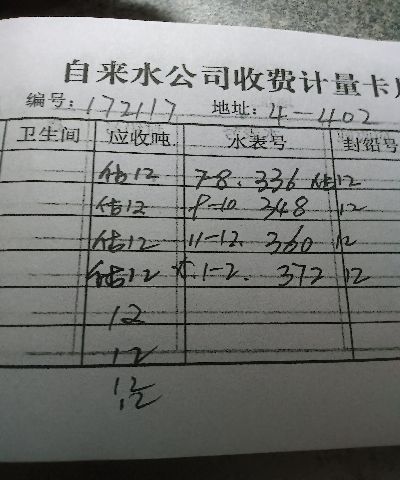 自来水公司收费计量卡
编号: 172117 地址: 4-402
卫生间 应收吨 水表号 封铅号
估12 7-8. 336 估12
估12 9-10 348 12
估12 11-12. 360 12
估12 1-2. 372 12
12
12
12